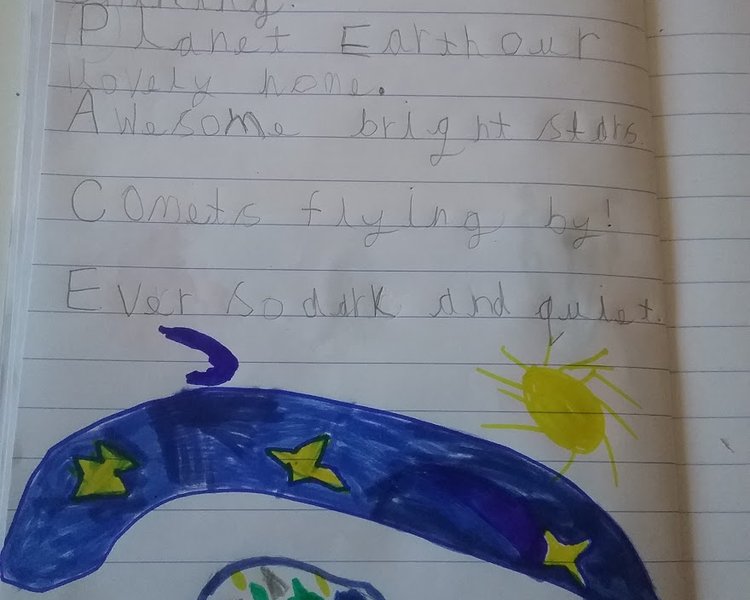 Planet Earth our
lovely home.
Awesome bright stars.
Comets flying by!
Ever so dark and quiet.